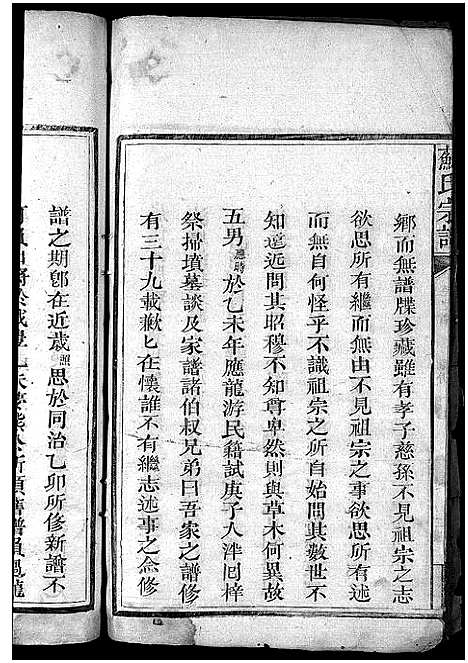 蘇氏宗譜
鄉而無譜牒珍藏雖有孝子慈孫不見祖宗之志
欲思所有繼而由不見祖宗之事欲思所有述
而無自何怪乎不識祖宗之所自始間其數世不
知遠近問其昭穆不知尊卑然則與草木何異故
五男應時於乙未年應龍游民籍試庚子入泮囘梓
祭掃墳墓談及家譜諸伯叔兄弟曰吾家之譜修
有三十九載歉匕在懷誰不有繼志述事之念修
譜之期卽在近歲 思於同治乙卯所修新譜不